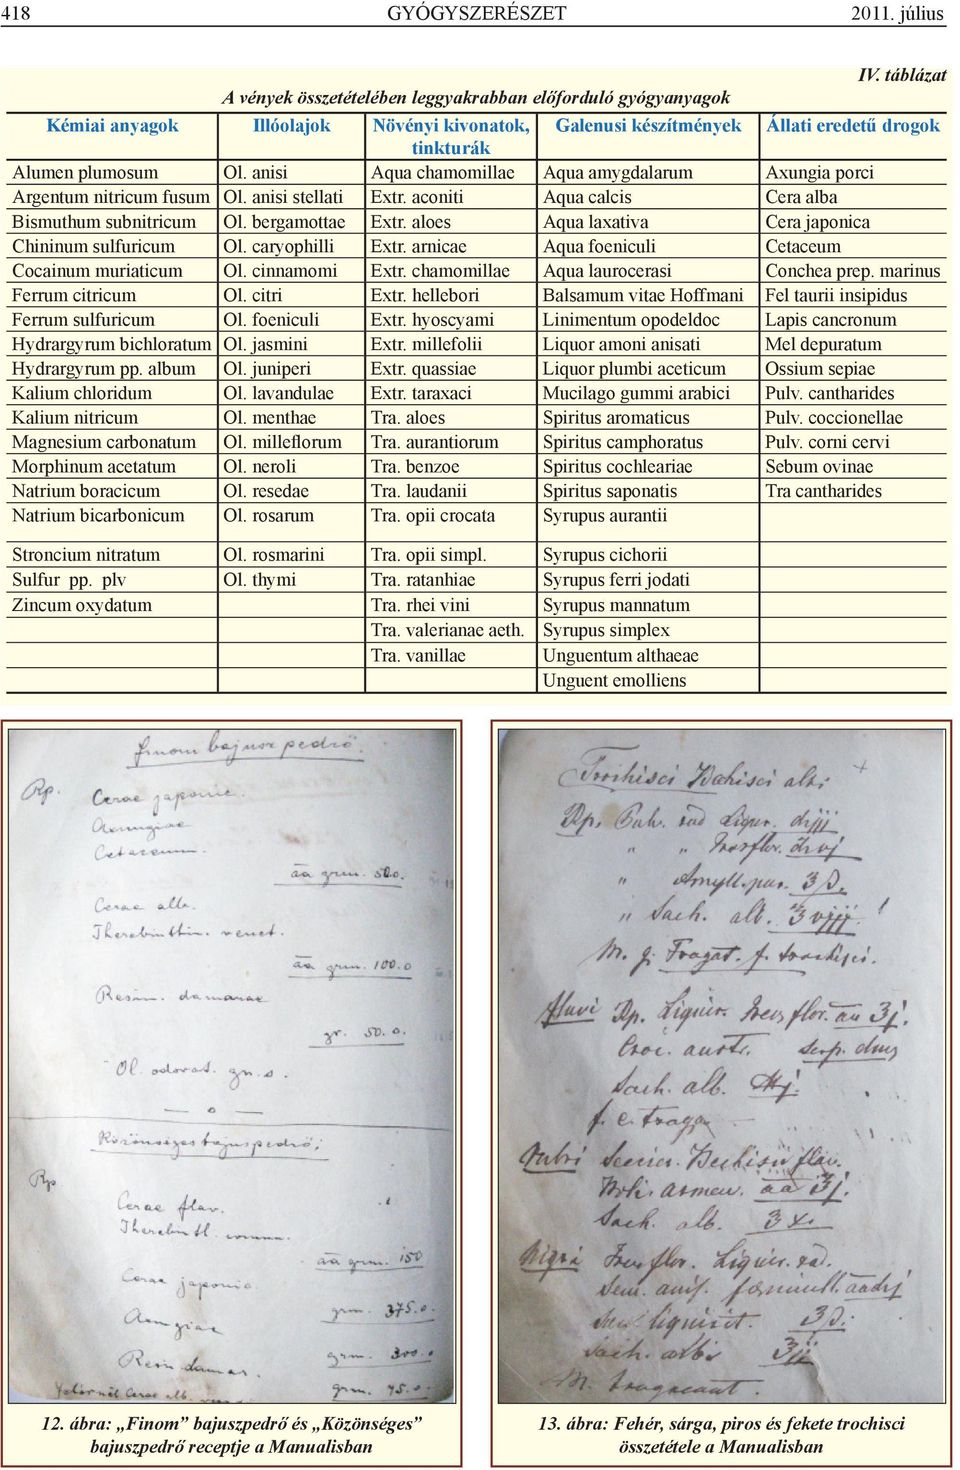 418 GYÓGYSZERÉSZET 2011. július
IV. táblázat
A vények összetételében leggyakrabban előforduló gyógyanyagok
Kémiai anyagok Illóolajok Növényi kivonatok, tinkturák Galenusi készítmények Állati eredetű drogok
Alumen plumosum Ol. anisi Aqua chamomillae Aqua amygdalarum Axungia porci
Argentum nitricum fusum Ol. anisi stellati Extr. aconiti Aqua calcis Cera alba
Bismuthum subnitricum Ol. bergamottae Extr. aloes Aqua laxativa Cera japonica
Chininum sulfuricum Ol. caryophilli Extr. arnicae Aqua foeniculi Cetaceum
Cocainum muriaticum Ol. cinnamomi Extr. chamomillae Aqua laurocerasi Conchea prep. marinus
Ferrum citricum Ol. citri Extr. hellebori Balsamum vitae Hoffmani Fel taurii insipidus
Ferrum sulfuricum Ol. foeniculi Extr. hyoscyami Linimentum opodeldoc Lapis cancronum
Hydrargyrum bichloratum Ol. jasmini Extr. millefolii Liquor amoni anisati Mel depuratum
Hydrargyrum pp. album Ol. juniperi Extr. quassiae Liquor plumbi aceticum Ossium sepiae
Kalium chloridum Ol. lavandulae Extr. taraxaci Mucilago gummi arabici Pulv. cantharides
Kalium nitricum Ol. menthae Tra. aloes Spiritus aromaticus Pulv. coccionellae
Magnesium carbonatum Ol. milleflorum Tra. aurantiorum Spiritus camphoratus Pulv. corni cervi
Morphinum acetatum Ol. neroli Tra. benzoe Spiritus cochleariae Sebum ovinae
Natrium boracicum Ol. resedae Tra. laudanii Spiritus saponatis Tra cantharides
Natrium bicarbonicum Ol. rosarum Tra. opii crocata Syrupus aurantii
Stroncium nitratum Ol. rosmarini Tra. opii simpl. Syrupus cichorii
Sulfur pp. plv Ol. thymi Tra. ratanhiae Syrupus ferri jodati
Zincum oxydatum Tra. rhei vini Syrupus mannatum
Tra. valerianae aeth. Syrupus simplex
Tra. vanillae Unguentum althaeae
Unguent emolliens
Finom bajusz pedrő.
Rp. Cerae japonic.
Axungiae
Cetaceum
āā grm. 500.
Cerae alb.
Therebinttin. venet.
āā grm. 100.0
Resin. damarae
gr. 50.0.
Ol. odorat. gu. s.
— o —
Közönséges bajuszpedrő;
Rp
Cerae flav.
Therebintl. commu.
āā grm. 150
Cerae japonic.
Axungiae grm. 375.0.
Resin damar. grm. 300.0
Cerae alb. grm. 75.0.
Trochisci Bechisci alb:
Rp. Pulv. rad Liquir.
" "
" Amyll. pur.
" Sach. alb.
M. g. Tragat. f. trochisci.
Flavi Rp. Liquir.
Croci. austr.
Sach. alb.
Rubri Bechisci flav.
Boli. armen. āā
Sach. alb.
Nigri Liquir. rad.
Sem. anis.
liquirit.
Sach. albi
M.
12. ábra: „Finom” bajuszpedrő és „Közönséges”
bajuszpedrő receptje a Manualisban
13. ábra: Fehér, sárga, piros és fekete trochisci
összetétele a Manualisban